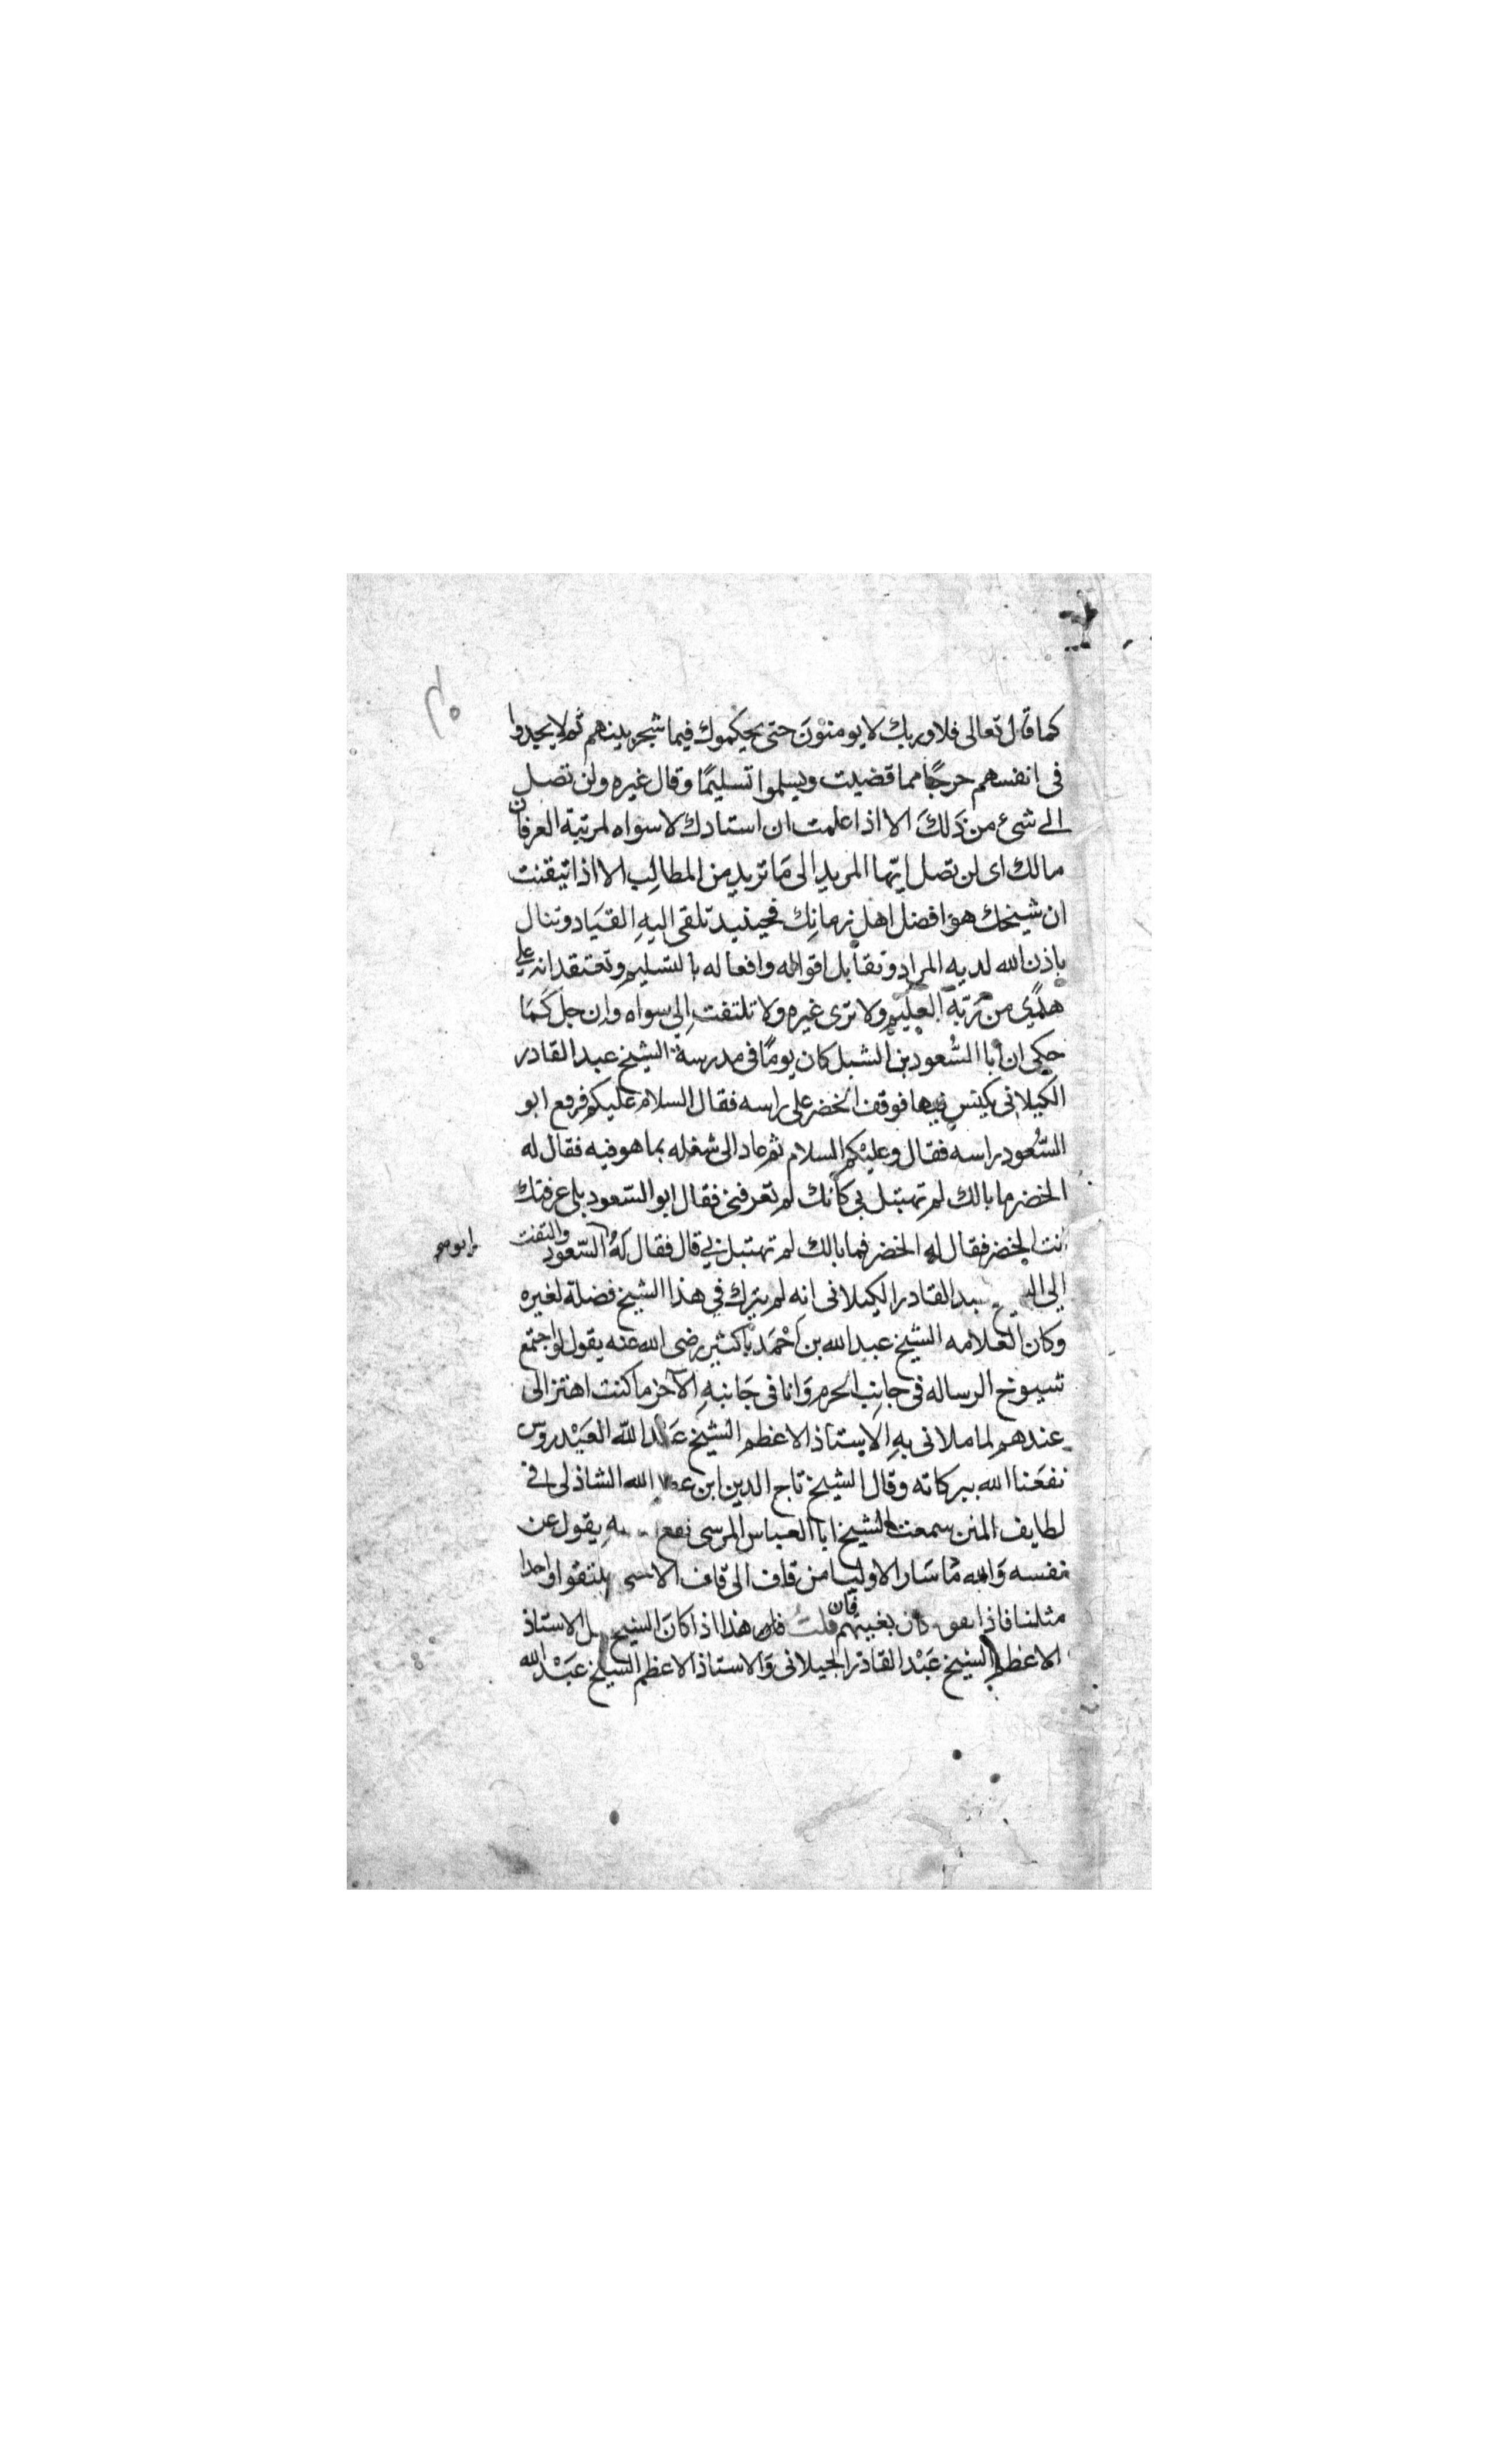 كما قال تعالى فلا وربك لا يومنون حتى يحكموك فيما شجر بينهم ثم لا يجدوا
فى انفسهم حرجًا مما قضيت ويسلموا تسليمًا وقال غيره ولن تصل
الى شئ من ذلك الا اذا علمت ان استادك لا سواه لمرتبة العرفان
مالك اى لن تصل ايها المريد الى ما تريد من المطالب الا اذا تيقنت
ان شيخك هو افضل اهل زمانك فحينيد تلقى اليه القياد وتنال
باذن الله لديه المراد وتقابل اقواله وافعاله بالتسليم وتعتقد انه على
هدًى من ربه العليم ولا ترى غيره ولا تلتفت الى سواه وان جل كما
حكى ان ابا السعود بن الشبل كان يومًا فى مدرسة الشيخ عبد القادر
الكيلانى يكنس فيها فوقف الخضر على راسه فقال السلام عليكم فرفع ابو
السعود راسه فقال وعليكم السلام ثم عاد الى شغله بما هو فيه فقال له
الخضر ما بالك لم تهتبل بى كأنك لم تعرفنى فقال ابو السعود بلى عرفتك
انت الخضر فقال له الخضر فما بالك لم تهتبل بى قال فقال له السعود والتفت
الى القادر الكيلانى انه لم يترك فى هذا الشيخ فضلة لغيره
وكان العلامه الشيخ عبد الله بن احمد باكثير رضى الله عنه يقول لو اجتمع
شيوخ الرساله فى جانب الحرم وانا فى جانبه الآخر ما كنت اهتز الى
عندهم لما ملانى به الاستاذ الاعظم الشيخ عبد الله العيدروس
نفعنا الله ببركاته وقال الشيخ تاج الدين ابن الله الشاذلى فى
لطايف المنن سمعت الشيخ ابا العباس المرسى يقول عن
نفسه والله ما سار الاوليا من قاف الى قاف الا يلتقوا واحدا
مثلنا فاذا كان بغيتهم قلت فان هذا اذا كان الشيخ الاستاذ
الاعظم الشيخ عبد القادر الجيلانى والاستاذ الاعظم الشيخ عبد الله